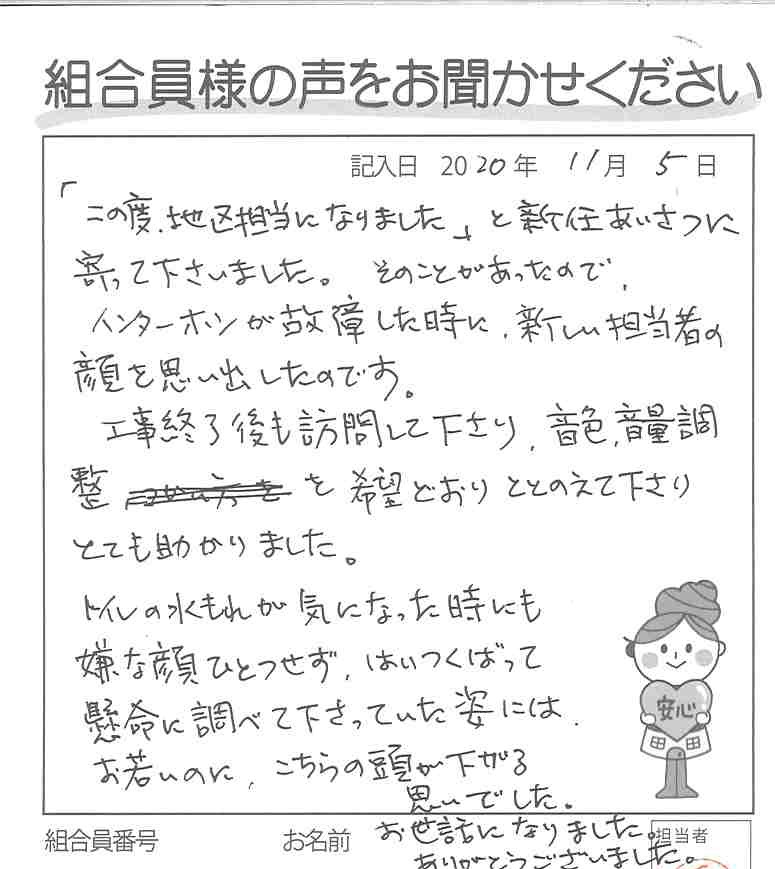 組合員様の声をお聞かせください
記入日 2020年 11月 5日
「この度、地区担当になりました」と新任あいさつに
寄って下さいました。 そのことがあったので、
インターホンが故障した時に、新しい担当者の
顔を思い出したのです。
工事終了後も訪問して下さり、音色、音量調
整 を 希望どおり ととのえて下さり
とても助かりました。
トイレの水もれが気になった時にも
嫌な顔ひとつせず、はいつくばって
懸命に調べて下さっていた姿には、
お若いのに、こちらの頭が下がる
思いでした。
安心
お世話になりました。
ありがとうございました。
組合員番号 お名前 担当者